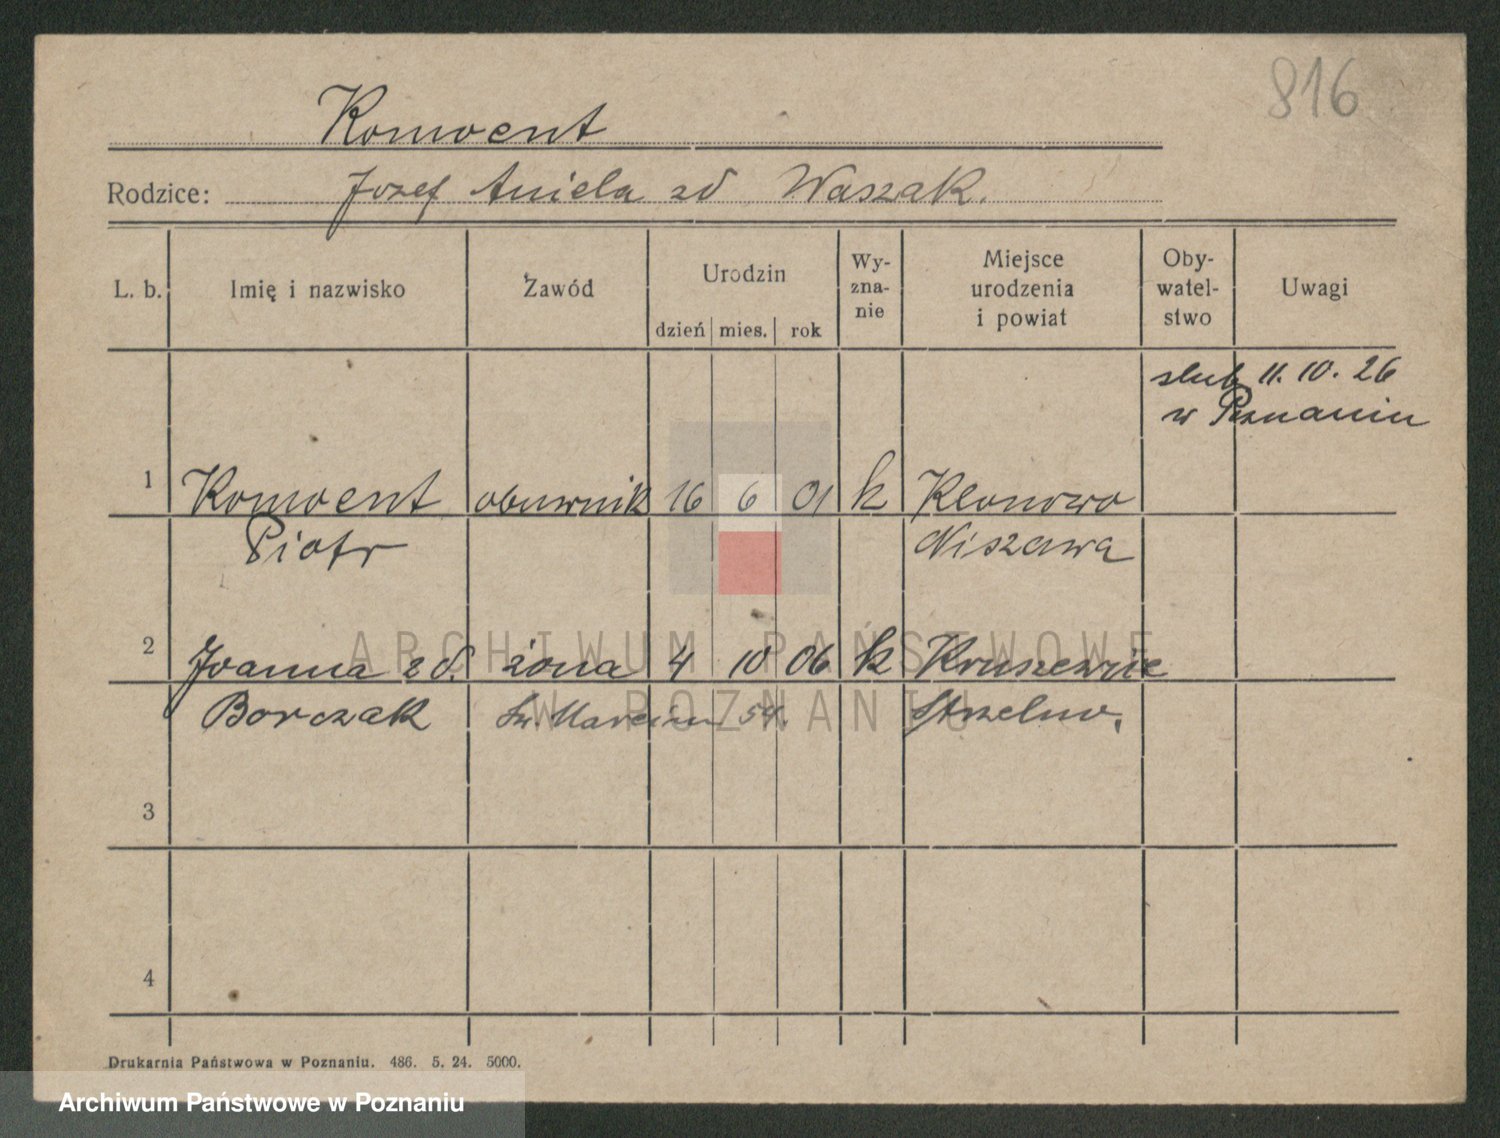 816
Komwent
Rodzice: Jozef Aniela zd Waszak.
L. b. Imię i nazwisko Zawód Urodzin Wy-zna-nie Miejsce urodzenia i powiat Oby-watel-stwo Uwagi
dzień mies. rok
slub 11. 10. 26
w Poznaniu
1 Komwent obuwnik 16 6 01 k Klonowo
Piotr Niszawa
2 Joanna zd. żona 4 10 06 k Kruszewnie
Borczak Św. Marcin 54. Strzelno.
3
4
ARCHIWUM PAŃSTWOWE
W POZNANIU
Drukarnia Państwowa w Poznaniu. 486. 5. 24. 5000.
Archiwum Państwowe w Poznaniu